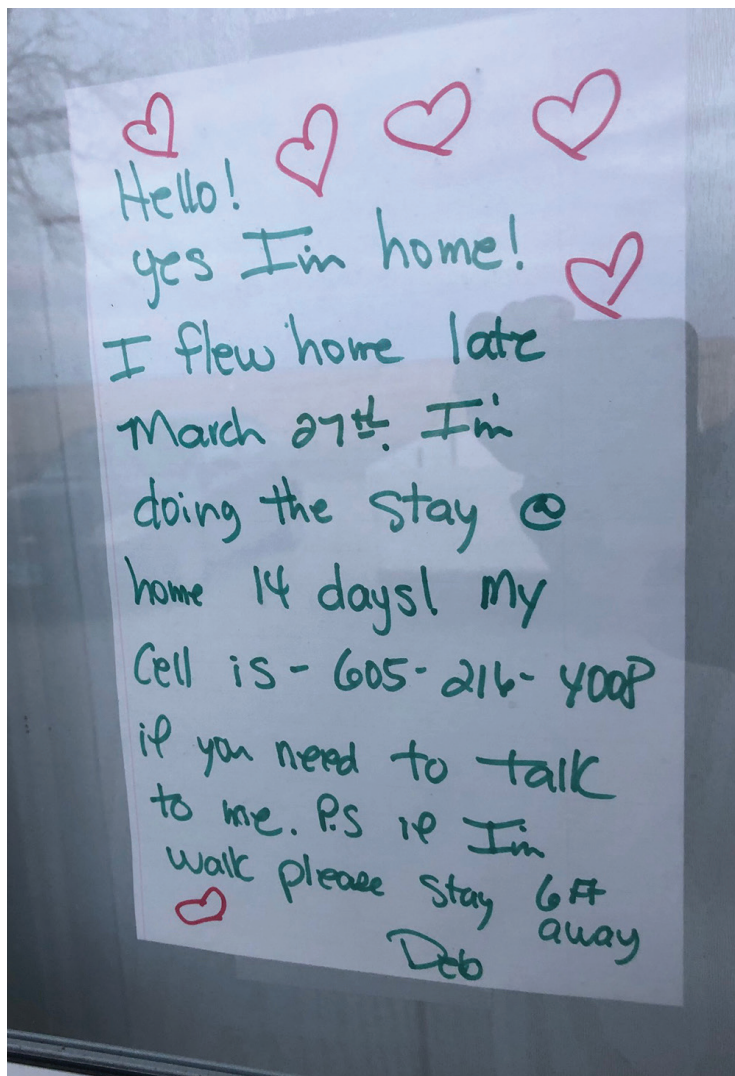 Hello!
yes I'm home!
I flew home late
March 27th. I'm
doing the stay @
home 14 days! My
Cell is - 605- 216- 4008
if you need to talk
to me. P.S if I'm
walk please stay 6ft
away
Deb